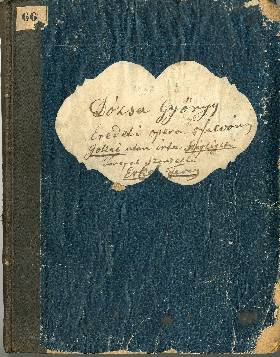 66
Dózsa György
Eredeti opera 5 felvon
Jókai után irta Szigligeti
Zenéjét szerzette
Erkel Ferencz